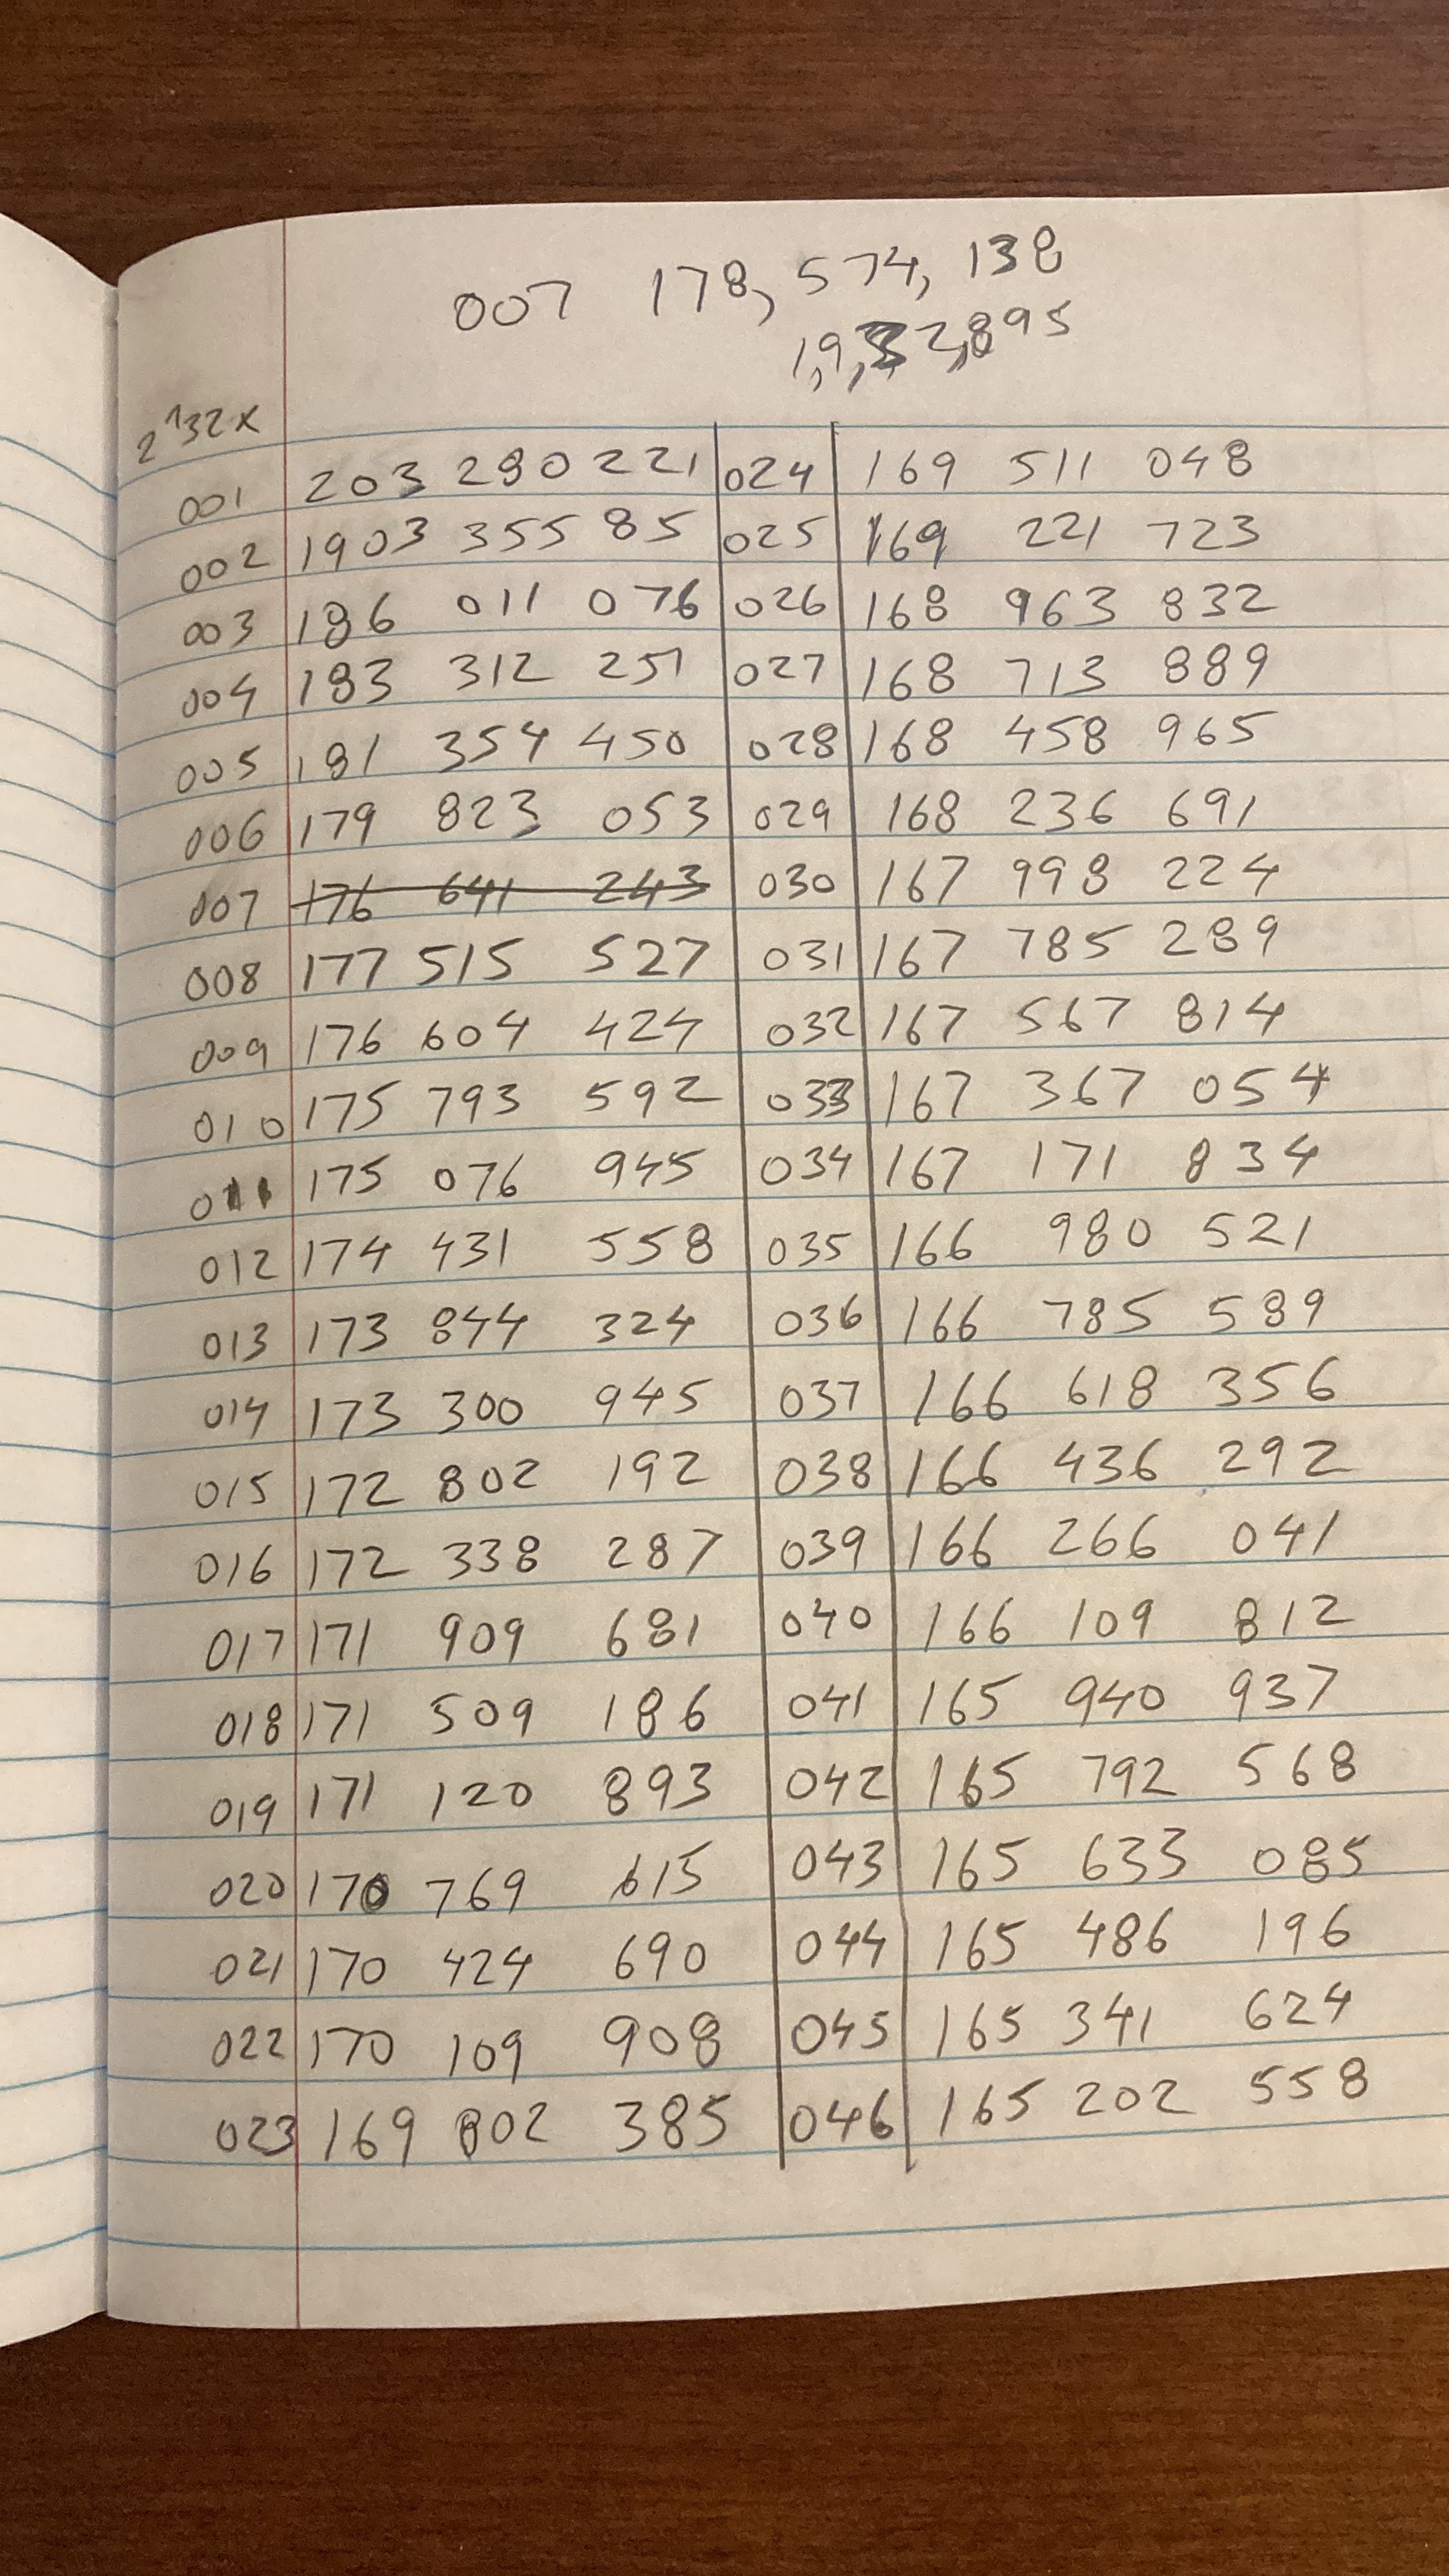 007 178,574,138
1,9,32,895
2^32x
001 203 280 221 024 169 511 048
002 1903 355 85 025 169 221 723
003 186 011 076 026 168 963 832
004 183 312 251 027 168 713 889
005 181 354 450 028 168 458 965
006 179 823 053 029 168 236 691
007 176 641 243 030 167 998 224
008 177 515 527 031 167 785 289
009 176 604 424 032 167 567 814
010 175 793 592 033 167 367 054
011 175 076 945 034 167 171 834
012 174 431 558 035 166 980 521
013 173 844 324 036 166 785 589
014 173 300 945 037 166 618 356
015 172 802 192 038 166 436 292
016 172 338 287 039 166 266 041
017 171 909 681 040 166 109 812
018 171 509 186 041 165 940 937
019 171 120 893 042 165 792 568
020 170 769 615 043 165 633 085
021 170 424 690 044 165 486 196
022 170 109 908 045 165 341 624
023 169 802 385 046 165 202 558